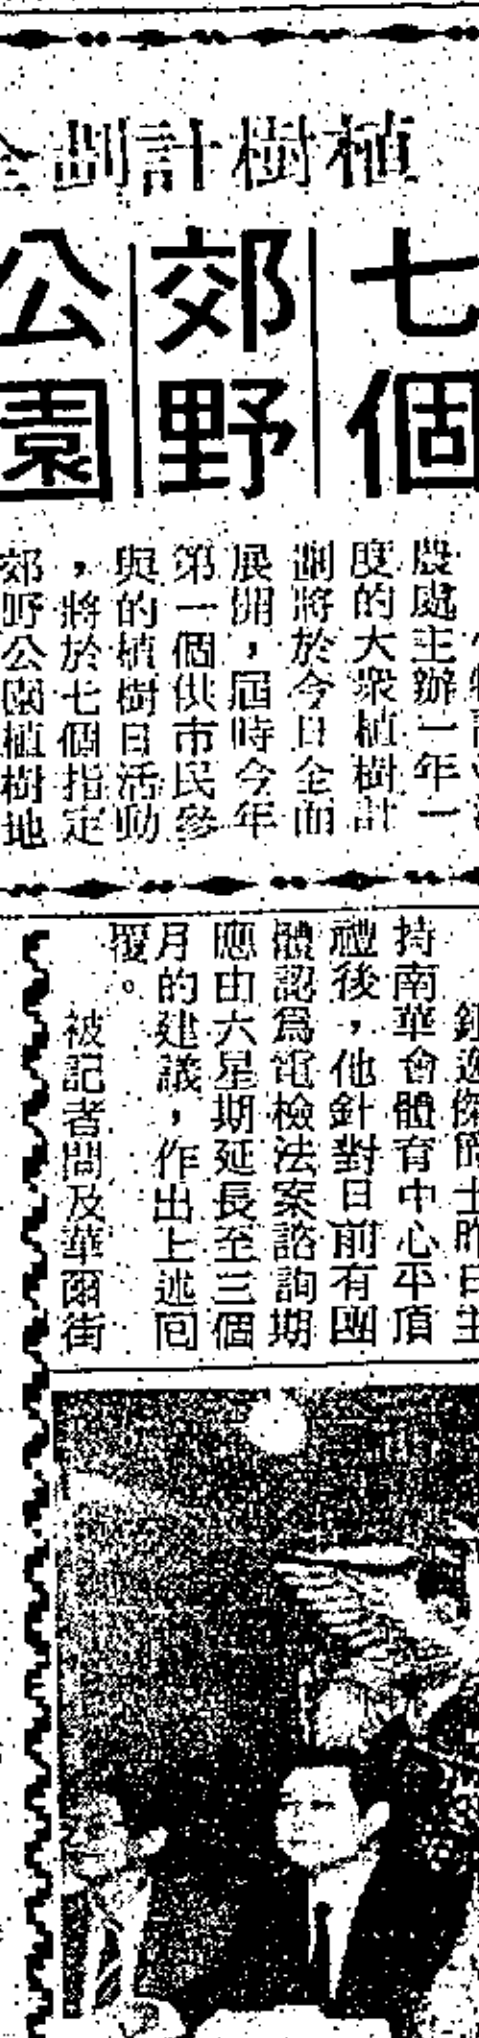 植樹計劃全
七個
郊野
公園
農處主辦一年一
度的大衆植樹計
劃將於今日全面
展開，屆時今年
第一個供市民參
與的植樹日活動
，將於七個指定
郊野公園植樹地
鍾逸傑爵士昨日主
持南華會體育中心平頂
禮後，他針對日前有團
體認爲電檢法案諮詢期
應由六星期延長至三個
月的建議，作出上述回
覆。
被記者問及華爾街